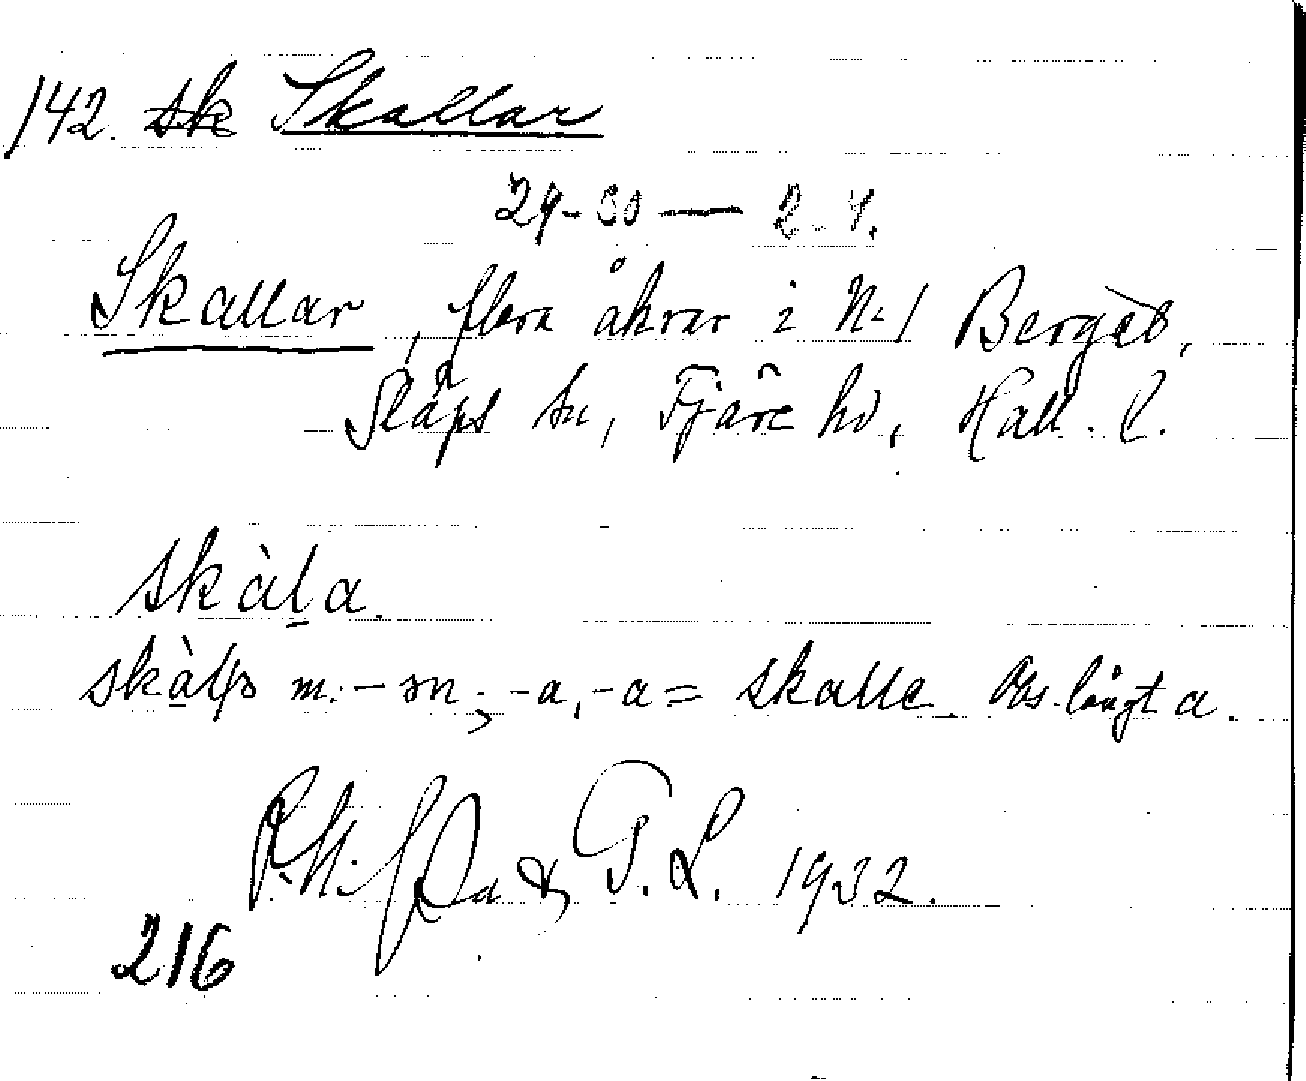 142. sk Skallar
29-30 — 2. 4.
Skallar, flera åkrar i N:1 Bergès,
Släps sn, Fjäre hd, Hall. l.
skàl̠a.
m. -  ; -a, -a = skalle. Obs. långt a.
& T. L. 1932.
216